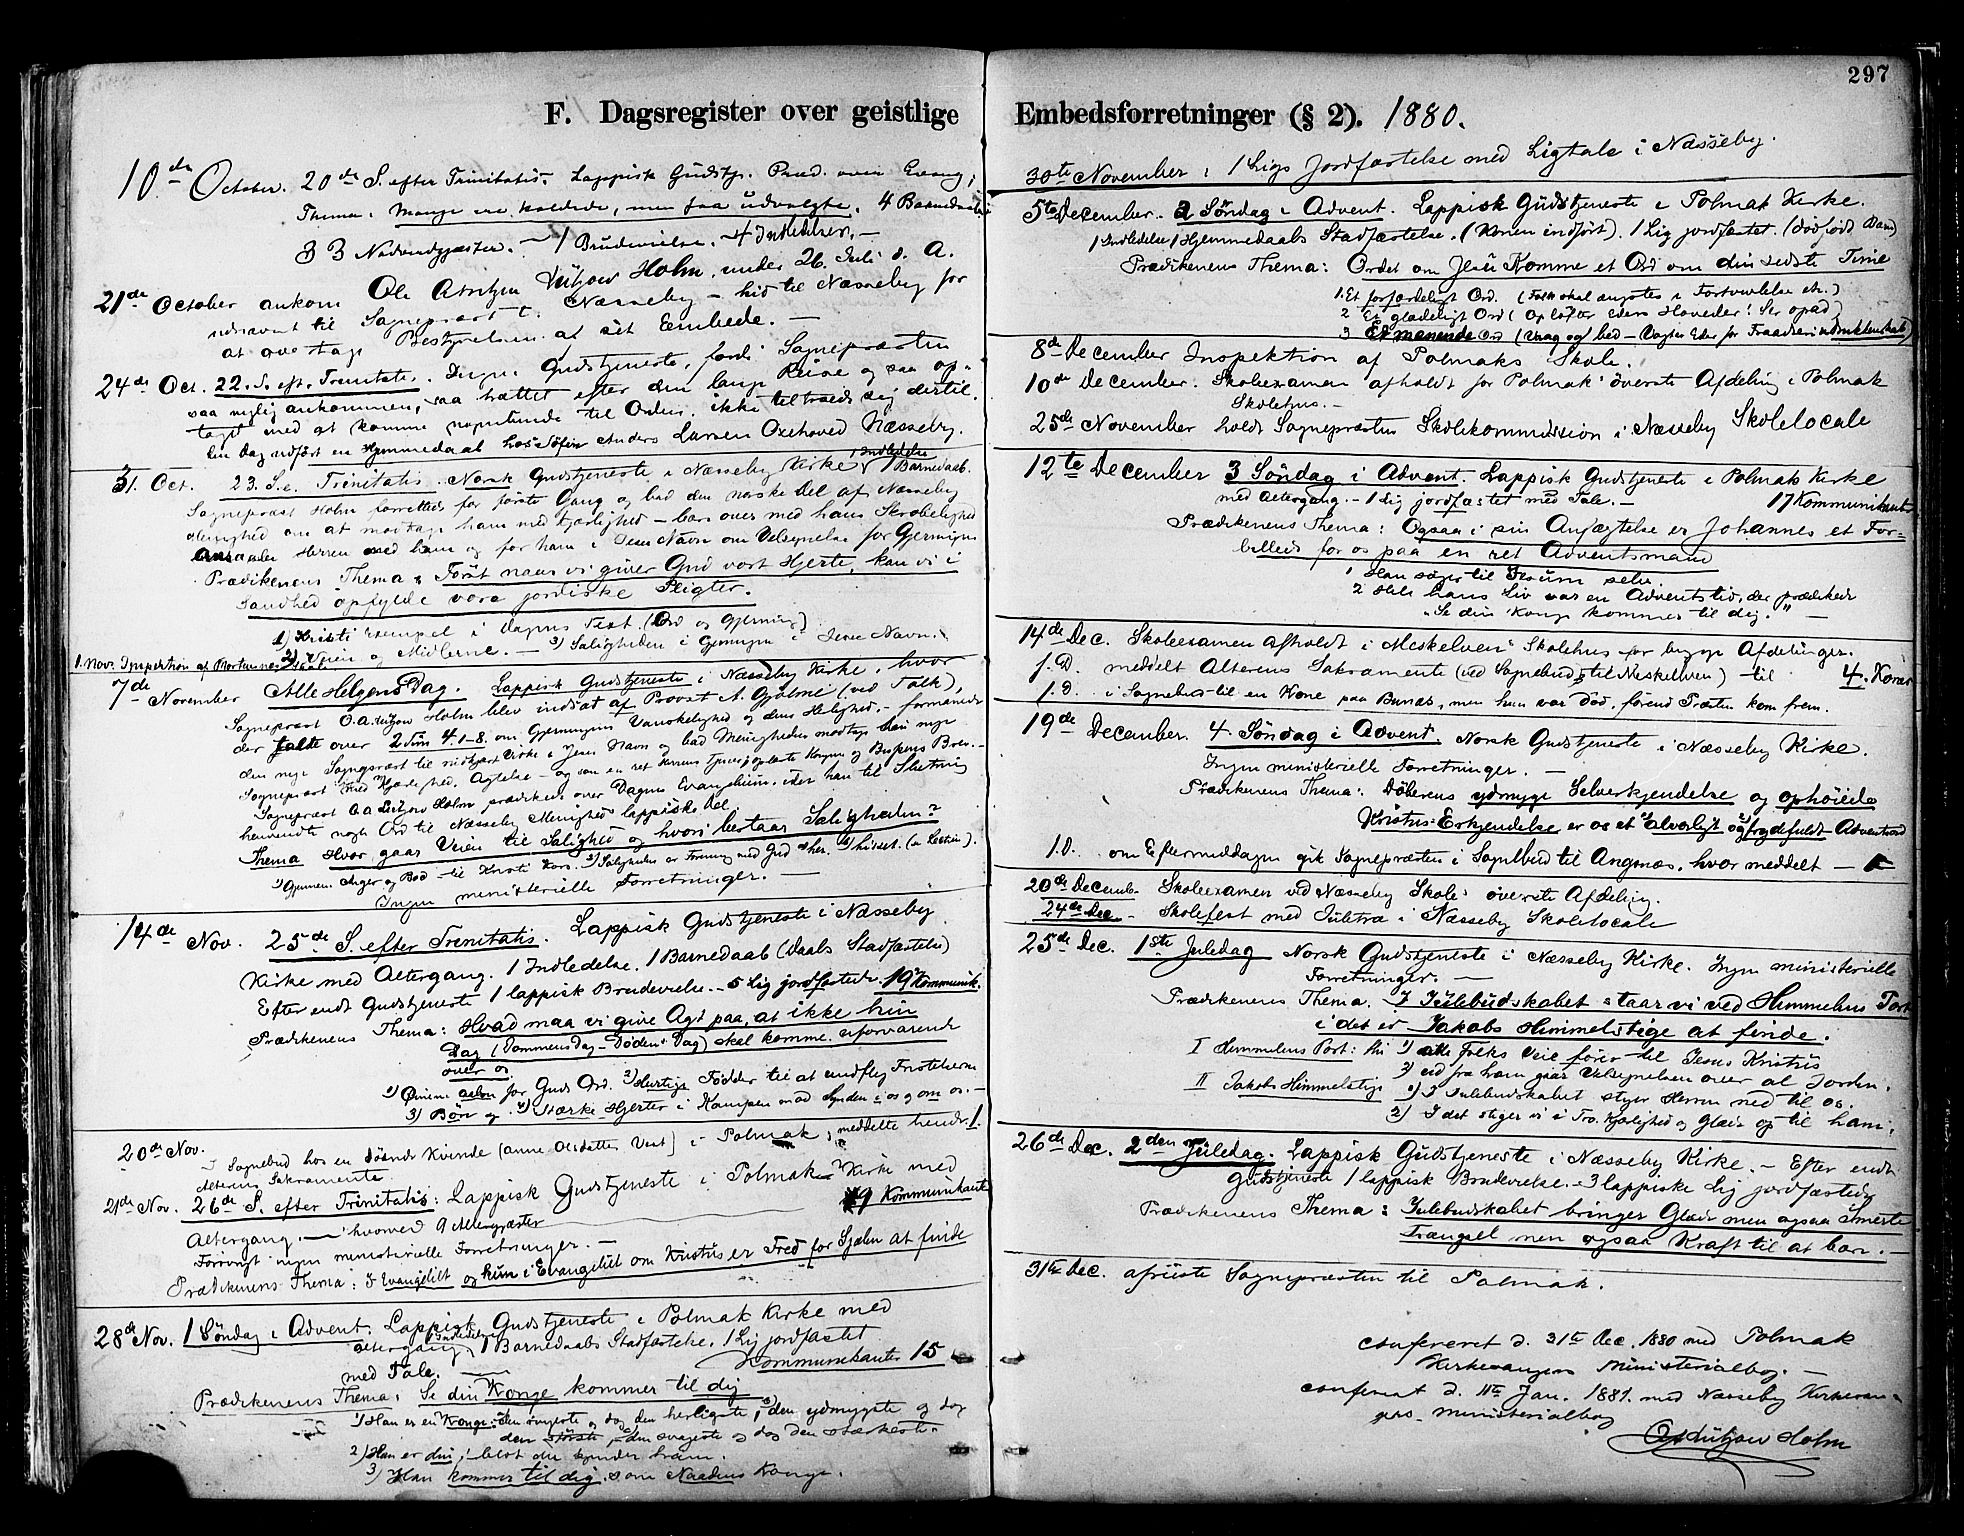 297
F. Dagsregister over geistlige Embedsforretninger (§ 2). 1880.
10de October. 20de S. efter Trinitatis. Lappisk Gudstj. Præd. over Evang.,
Thema: Mange ere kaldede, men faa udvalgte. 4 Barnedaab
33 Nadverdgjæster. – 1 Brudevielse. – 4 Indledelser. –
21de October ankom Ole Lützow Holm, under 26. Juli d. A.
udnævnt til Sognepræst i Næsseby – hid til Næsseby for
at overtage Bestyrelsen af sit Embede. –
24de Oct. 22. S. eft. Trinitatis. Ingen Gudstjeneste, fordi Sognepræsten
saa nylig ankommen, saa trættet efter den lange Reise og saa op-
taget med at komme nogenlunde til Orden, ikke tiltroede sig dertil.
Den Dag udført en Hjemmedaab hos Anders Larsen Oxehoved Næsseby.
31. Oct. 23. S. e. Trinitatis. Norsk Gudstjeneste i Næsseby Kirke 1 Indledelse 1 Barnedaab.
Sognepræst Holm forrettede for første Gang og bad den norske Del af Næsseby
Menighed om at modtage ham med Kjærlighed – bære over med hans Skrøbelighed
Herren med ham og for ham i Jesu Navn om Velsignelse for Gjerningen
Prædikenens Thema: Først naar vi giver Gud vort Hjerte, kan vi i
Sandhed opfylde vore jordiske Pligter.
1) Kristi Exempel i Dagens Text. (Ord og Gjerning)
2) Veien og Midlerne. – 3) Saligheden i Gjerningen i Jesu Navn.
1. Nov. Inspektion af
7de November Alle Helgens Dag. Lappisk Gudstjeneste i Næsseby Kirke, hvor
Sognepræst O. A. Lützow Holm blev indsat af Provst A. Gjølme (ved Tolk),
der talte over 2 Tim 4. 1-8. om Gjerningens Vanskelighed og dens Helighed, – formanede
den nye Sognepræst til Virke i Jesu Navn og bad Menigheden modtage sin nye
Sognepræst med Kjærlighed, Agtelse – og som en ret Herrens Tjener, oplæste Kongens og Bispens Brev. –
Sognepræst O. A. Lützow Holm prædikede over Dagens Evangelium, efter han til Slutning
henvendte nogle Ord til Næsseby Menigheds lappiske Del.
Thema Hvor gaar Veien til Salighed og hvori bestaar Saligheden?
1) Gjennem Anger og Bod til Kristi Kors. 2) Saligheden er Forening med Gud her, hisset. (se Lectien).
Ingen ministerielle Forretninger. –
14de Nov. 25de S. efter Trinitatis. Lappisk Gudstjeneste i Næsseby
Kirke med Altergang. 1 Indledelse. 1 Barnedaab (Daabs Stadfæstelse)
Efter endt Gudstjeneste 1 lappisk Brudevielse. – 5 Lig jordfæstede. 19 Kommunik.
Prædikenens Thema: Hvad maa vi give Agt paa, at ikke hin
Dag (Dommens Dag – Dødens Dag) skal komme uforvarende
over os.
1) Øinene aabne for Guds Ord. 2) Hurtige Fødder til at undfly Fristelserne
3) Bøn og 4) Stærke Hjerter i Kampen mod Synden i os og om os. –
20de Nov. I Sognebud hos en døende Kvinde (Anne Olsdatter Vest) i Polmak; meddelte hende 1.
Alterens Sakramente
21de Nov. 26de S. efter Trinitatis: Lappisk Gudstjeneste i Polmak Kirke med
Altergang. – hvorved 9 Altergjæster 9 Kommunikanter
Forøvrigt ingen ministerielle Forretninger. –
Prædikenens Thema: I Evangeliet og kun i Evangeliet om Kristus er Fred for Sjælen at finde
28de Nov. 1 Søndag i Advent. Lappisk Gudstjeneste i Polmak Kirke med
altergang, 1 Indledelse 1 Barnedaabs Stadfæstelse, 1 Lig jordfæstet
med Tale. – Kommunikanter 15
Prædikenens Thema: Se din Konge kommer til dig
1) Han er en Konge: den ringeste og dog den herligste, den ydmygste og dog
den største, den svageste og dog den stærkeste.
2) Han er din; blot du kjender ham.
3) Han kommer til dig som Naadens Konge.
30te November: 1 Ligs Jordfæstelse med Ligtale i Næsseby.
5te December. 2 Søndag i Advent. Lappisk Gudstjeneste i Polmak Kirke.
1 Indledelse 1 Hjemmedaabs Stadfæstelse. (Konen indført). 1 Lig jordfæstet. (dødfødt Barn)
Prædikenens Thema: Ordet om Jesu Komme et Ord om din sidste Time
1. Et forfærdeligt Ord. (Folk skal ængstes i Fortvivlelse etc.)
2 Et glædeligt Ord (Opløfter Eders Hoveder! Ser opad)
3 Et manende Ord (Vaag og bed – Vogter Eder for Fraadseri
8de December Inspektion af Polmaks Skole.
10de December. Skoleexamen afholdt for Polmak øverste Afdeling i Polmak
Skolehus. –
25de November holdt Sognepræsten Skolekommission i Næsseby Skolelocale
12te December 3 Søndag i Advent. Lappisk Gudstjeneste i Polmak Kirke
med Altergang. – 1 Lig jordfæstet med Tale. – 17 Kommunikanter
Prædikenens Thema: Ogsaa i sin Anfægtelse er Johannes et For-
billede for os paa en ret Adventsmand
1 Han søger til Jesum selv.
2 Hele hans Liv var en Adventstid, der prædikede
„Se din Konge kommer til dig." –
14de Dec. Skoleexamen afholdt i Meskelvens Skolehus for begge Afdelinger.
s. D. meddelt Alterens Sakramente (ved Sognebud til Meskelven) til 4. Koner
s. D. i Sognebud til en Kone paa Bunæs, men hun var død, førend Præsten kom frem.
19de December. 4. Søndag i Advent. Norsk Gudstjeneste i Næsseby Kirke.
Ingen ministerielle Forretninger. –
Prædikenens Thema: Døberens ydmyge Selverkjendelse og ophøiede
Kristus-Erkjendelse er os et alvorligt og frydefuldt Adventsord
s. D. om Eftermiddagen gik Sognepræsten i Sognebud til Angsnæs, hvor meddelt – 1
20de Decemb. Skoleexamen ved Næsseby Skoles øverste Afdeling.
24de Dec. – Skolefest med Juletræ i Næsseby Skolelocale
25de Dec. 1ste Juledag Norsk Gudstjeneste i Næsseby Kirke. Ingen ministerielle
Forretninger. –
Prædikenens Thema. I Julebudskabet staar vi ved Himmelens Port
i det er Jakobs Himmelstige at finde.
I Himmelens Port: thi 1) alle Folks Veie fører til Jesus Kristus
2) ud fra ham gaar Velsignelsen over al Jorden.
II Jakobs Himmelstige 1) I Julebudskabet stiger Herren ned til os.
2) I det stiger vi i Tro, Kjærlighed og Glæde op til ham.
26de Dec. 2den Juledag. Lappisk Gudstjeneste i Næsseby Kirke. – Efter endt
Gudstjeneste 1 lappisk Brudevielse. – 3 lappiske Lig jordfæstede
Prædikenens Thema: Julebudskabet bringer Glæde men ogsaa Smerte
Trængsel men ogsaa Kraft til at bære. –
31te Dec. afreiste Sognepræsten til Polmak.
Confereret d. 31te Dec. 1880 med Polmak
Kirkesangers Ministerialbog. –
Confereret d. 11te Jan. 1881. med Næsseby Kirkesan-
gers Ministerialbog
O A Lützow Holm